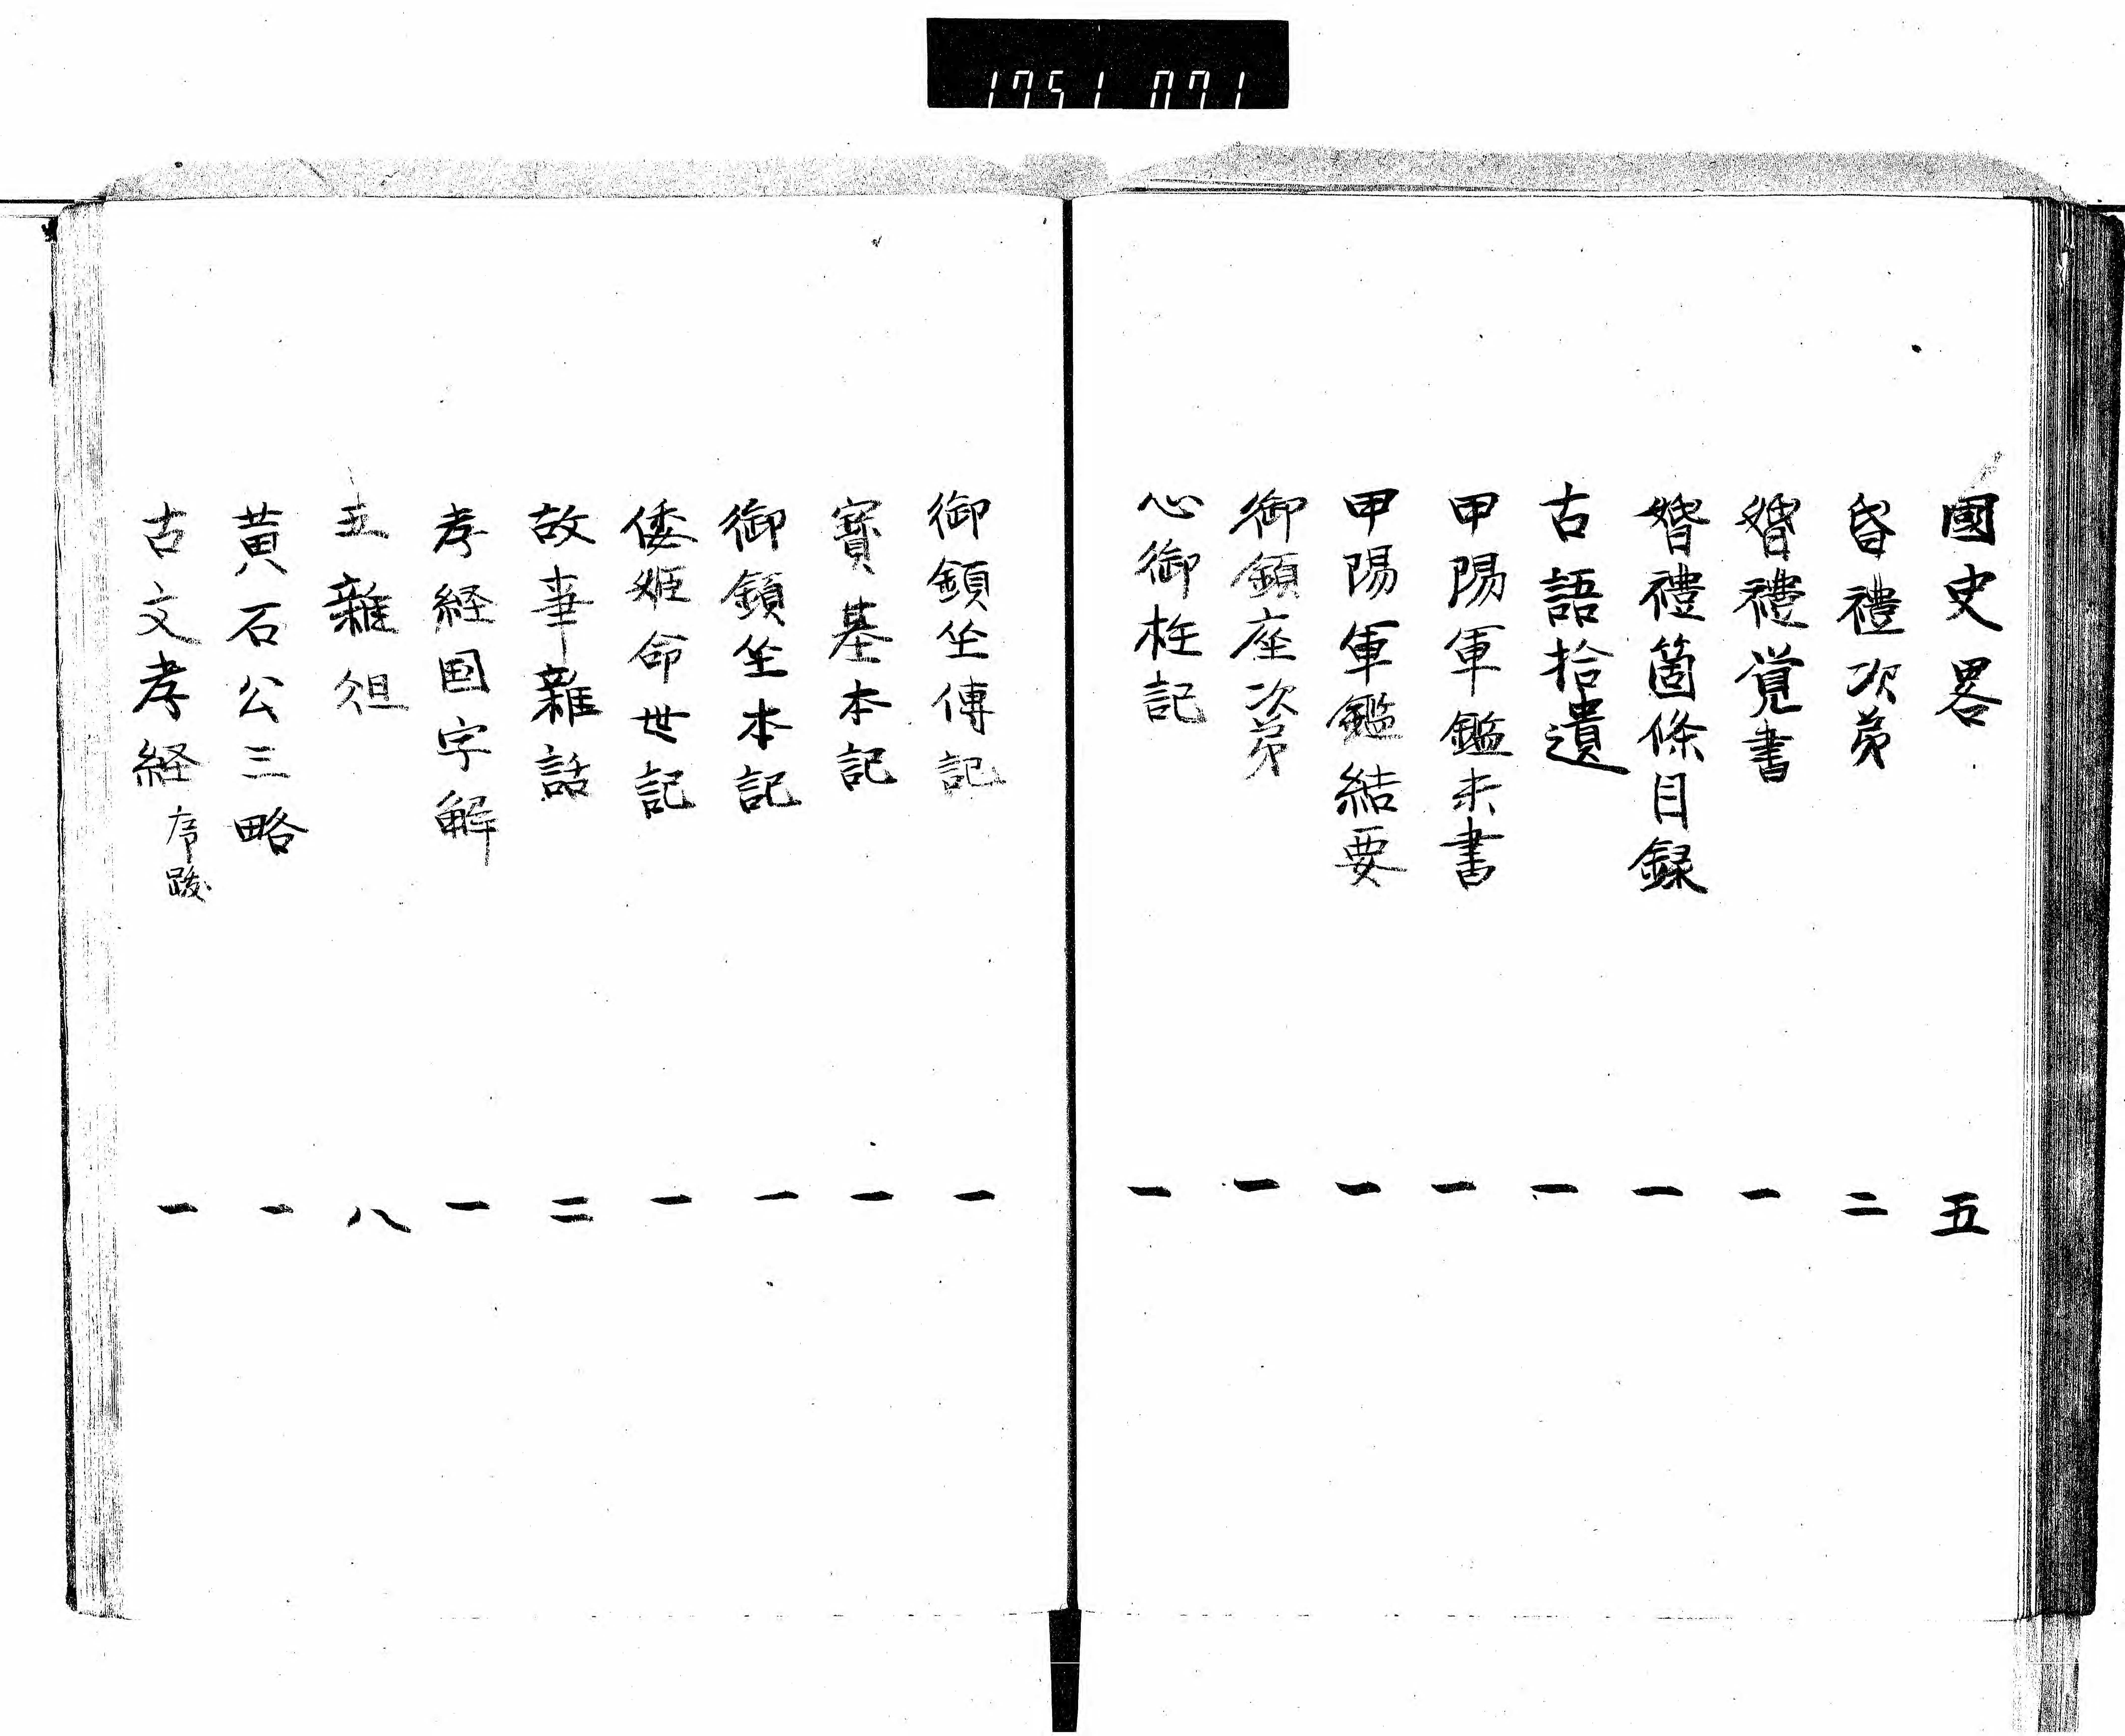 1751 071
國史畧 五
昏禮次第 二
婚禮覚書 一
婚禮箇條目録 一
古語拾遺 一
甲陽軍鑑末書 一
甲陽軍鑑結要 一
御鎮座次第 一
心御柱記 一
御鎮坐傳記 一
寳基本記 一
御鎮坐本記 一
倭姬命世記 一
故事雜話 二
孝経国字解 一
五雜俎 八
黄石公三略 一
古文孝経 序跋 一